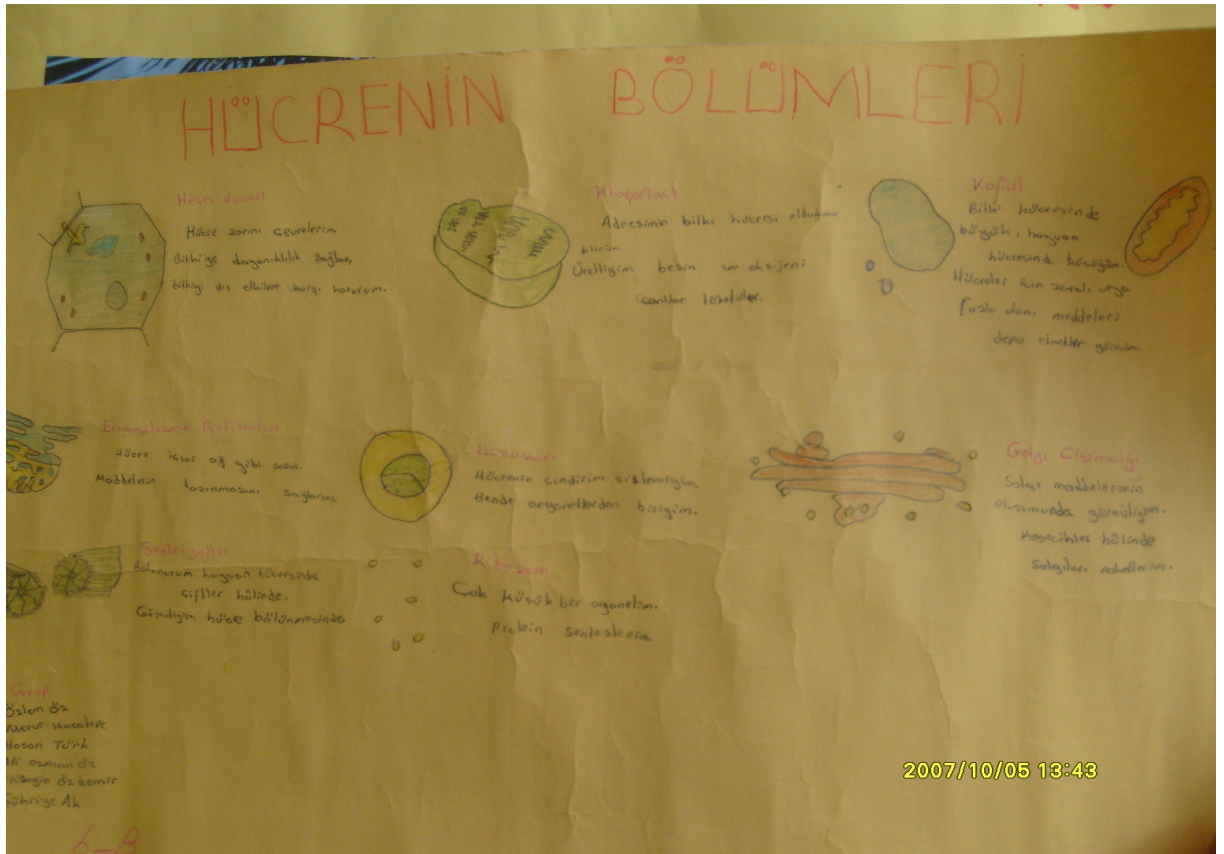 HÜCRENİN BÖLÜMLERİ
Hücre duvarı
Hücre zarını çevrelerim
Bitkiye dayanıklılık sağlar,
bitkiyi dış etkilere karşı korurum.
Kloroplast
Adresimin bitki hücresi olduğunu
bilirim.
Ürettiğim besin ve oksijeni
canlılar tüketirler.
Koful
Bitki hücresinde
büyük, hayvan
hücresinde küçüğüm.
Hücreler için zararlı veya
fazla olan maddeleri
depo etmektir görevim
Endoplazmik Retikulum
Hücre içini ağ gibi
Maddelerin taşınmasını sağlarım
Lizozom
Hücrenin sindirim sistemiyim,
Bende organellerden biriyim.
Golgi Cisimciği
Salgı maddelerinin
oluşumunda görevliyim.
Kesecikler hâlinde
salgıları paketlerim.
Sentriyoller
Bulunurum hayvan hücresinde
çiftler hâlinde.
Görevliyim hücre bölünmesinde.
Ribozom
Çok küçük bir organelim.
Protein sentezlerim
Grup
Özlem Öz
Hasan Türk
Ali osman öz
Hüseyin özdemir
Şükriye Ak
6-B
2007/10/05 13:43